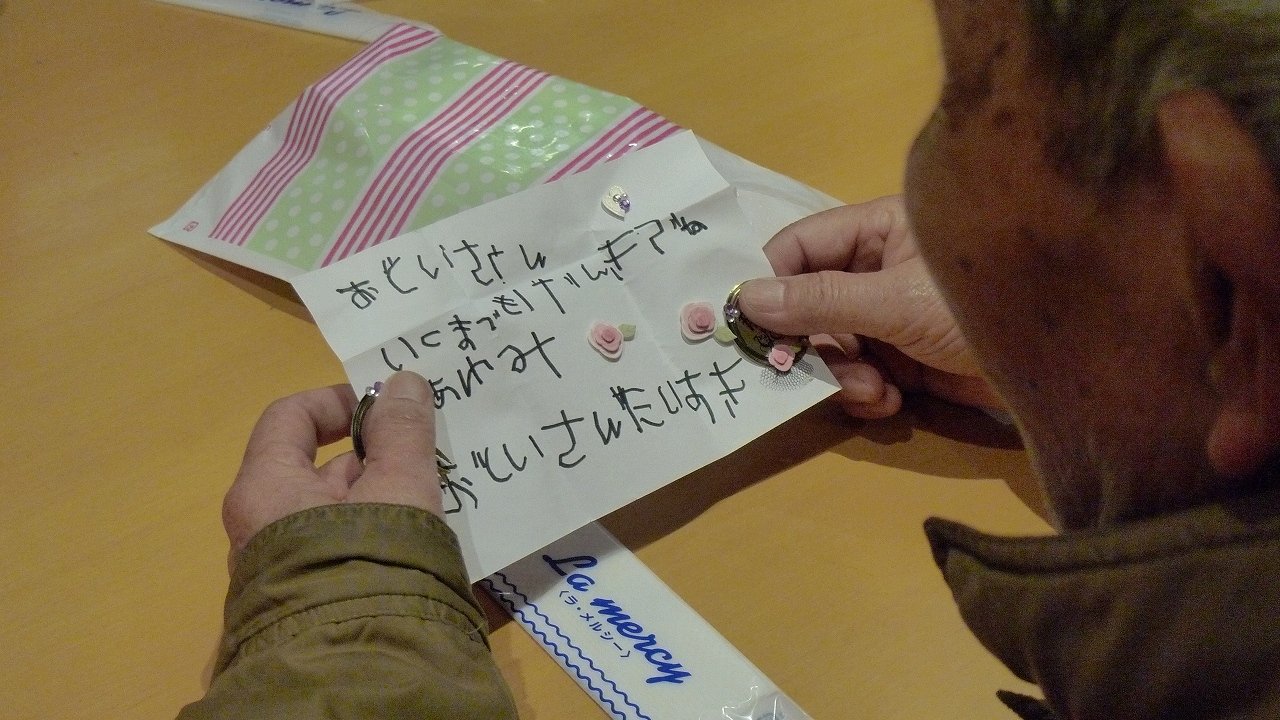 おじいさん
いくまづもげんきでね
あゆみ
おじいさんだいすき
La mercy
〈ラ・メルシー〉